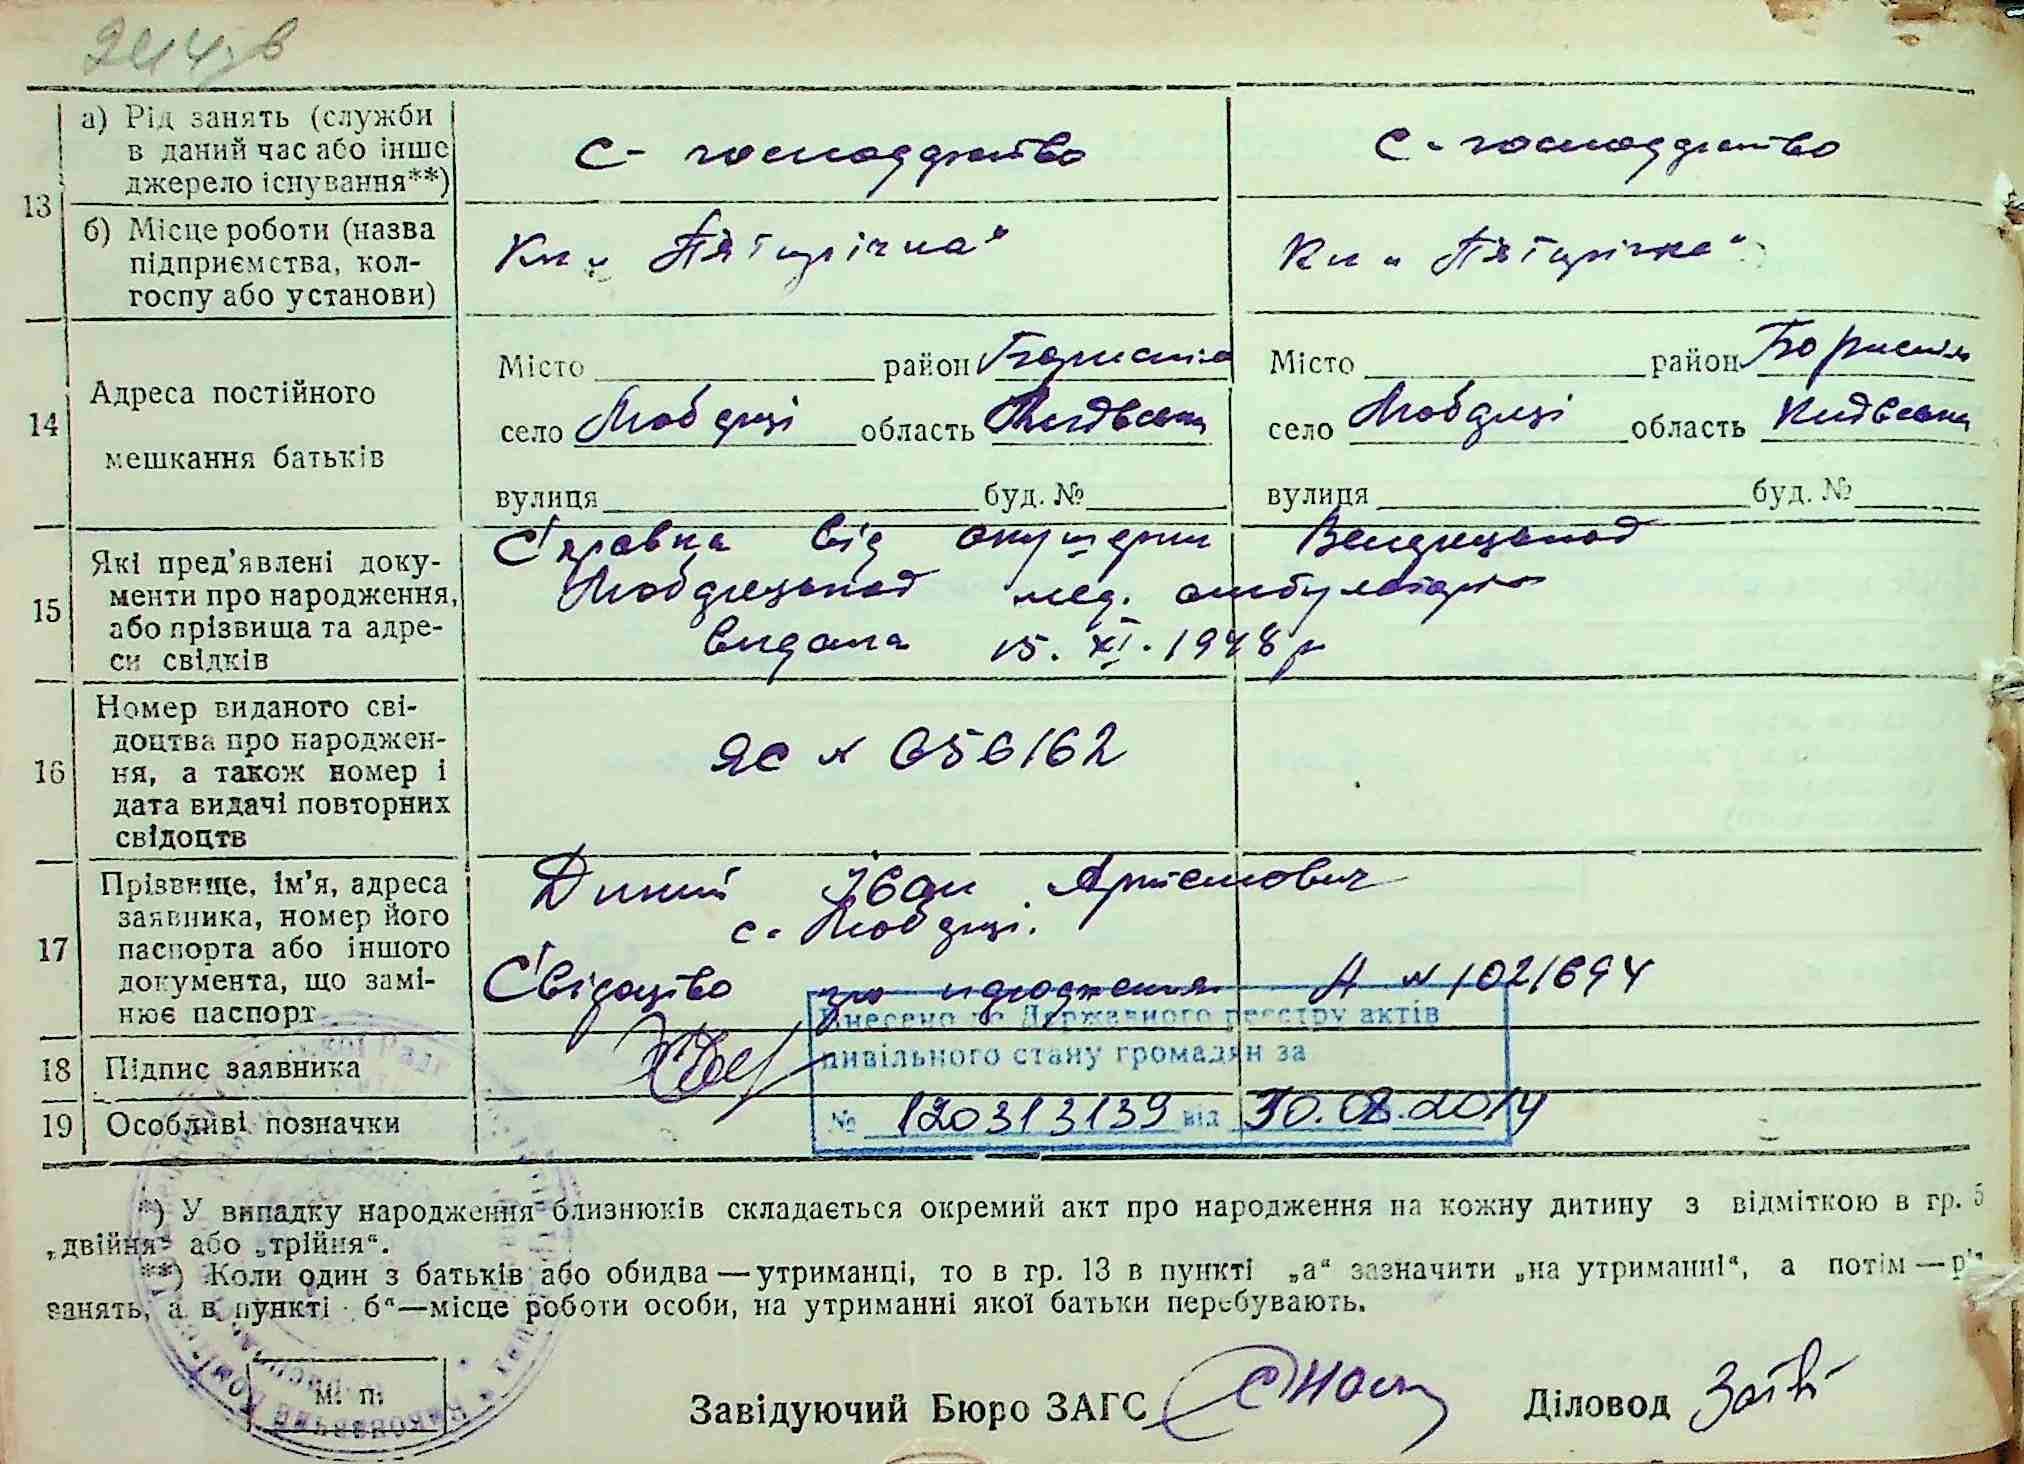 а) Рід занять (служби
в даний час або інше
джерело існування**)
с - господарство
с - господарство
13
б) Місце роботи (назва
підприємства, кол-
госпу або установи)
Кл „П'ятирічка“
Кл „П'ятирічка“
14
Адреса постійного
мешкання батьків
Місто район Бориспіль
село Любарці область Київська
вулиця буд. №
Місто район Бориспіль
село Любарці область Київська
вулиця буд. №
15
Які пред’явлені доку-
менти про народження,
або прізвища та адре-
си свідків
Справка від акушерки
Любарецької мед. амбулаторії
видана 15. XI. 1948 р
16
Номер виданого сві-
доцтва про народжен-
ня, а також номер і
дата видачі повторних
свідоцтв
ЯС № 656162
17
Прізвище, ім’я, адреса
заявника, номер його
паспорта або іншого
документа, що замі-
нює паспорт
Дикий Іван Артемович
с. Любарці.
Свідоцтво про народження А № 1021694
18 Підпис заявника
19 Особливі позначки
Внесено до Державного реєстру актів
цивільного стану громадян за
№ 120313139 від 30.08.2014
*) У випадку народження близнюків складається окремий акт про народження на кожну дитину з відміткою в гр. 5
„двійня“ або „трійня“.
**) Коли один з батьків або обидва—утриманці, то в гр. 13 в пункті „а“ зазначити „на утриманні“, а потім—рід
занять, а в пункті б“—місце роботи особи, на утриманні якої батьки перебувають.
м. п.
Завідуючий Бюро ЗАГС
Діловод